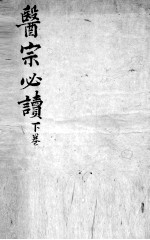 醫宗必讀下卷